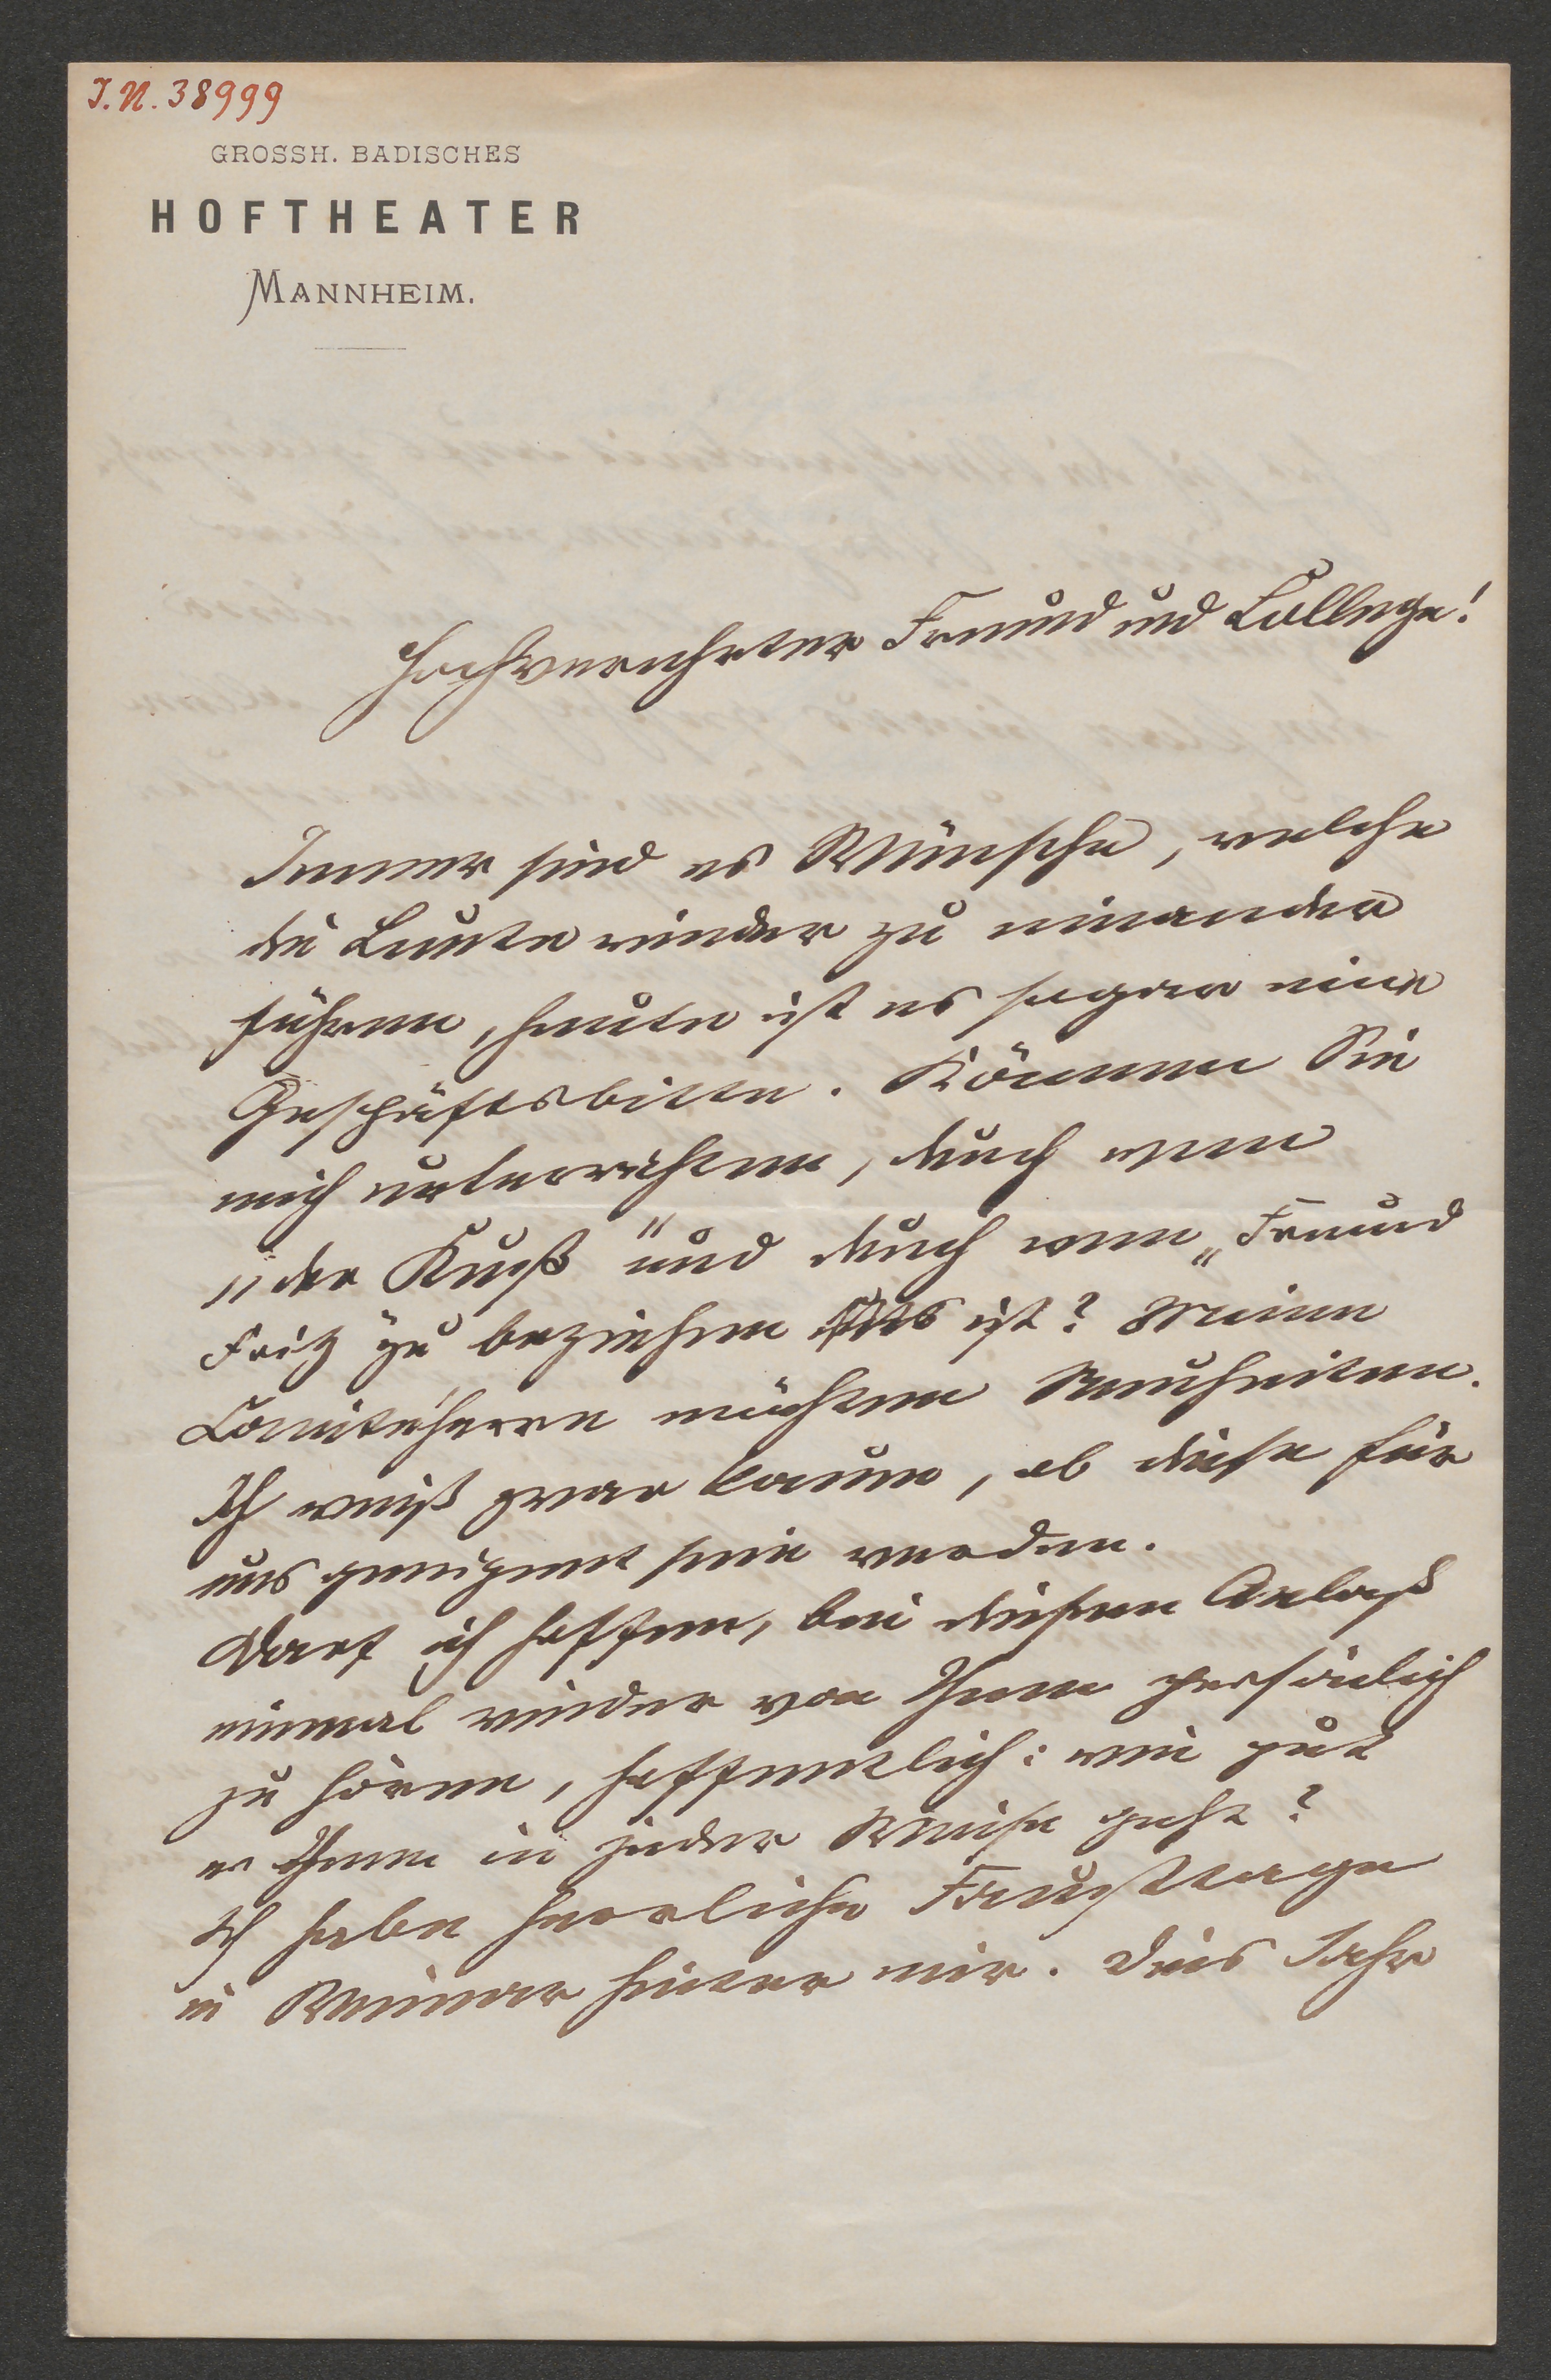 I.N. 38999
GROSSH. BADISCHES
HOFTHEATER
MANNHEIM.
Hochverehrter Freund und College!
Immer sind es Wünsche, welche
die Leute wieder zu einander
führen, heute ist es sogar eine
Geschäftsbitte. Können Sie
mich unterrichten, durch wen
„der Kuß" und durch wen „Freund
Fritz zu beziehen ist? Meine
Comitéherren möchten Neuheiten.
Ich weiß zwar kaum, ob diese für
uns geeignet sein werden.
Darf ich hoffen, bei diesem Anlaß
einmal wieder von Ihnen persönlich
zu hören, hoffentlich: wie gut
es Ihnen in jeder Weise geht?
Ich habe herrliche Fausttage
in Weimar hinter mir. Dies Jahr